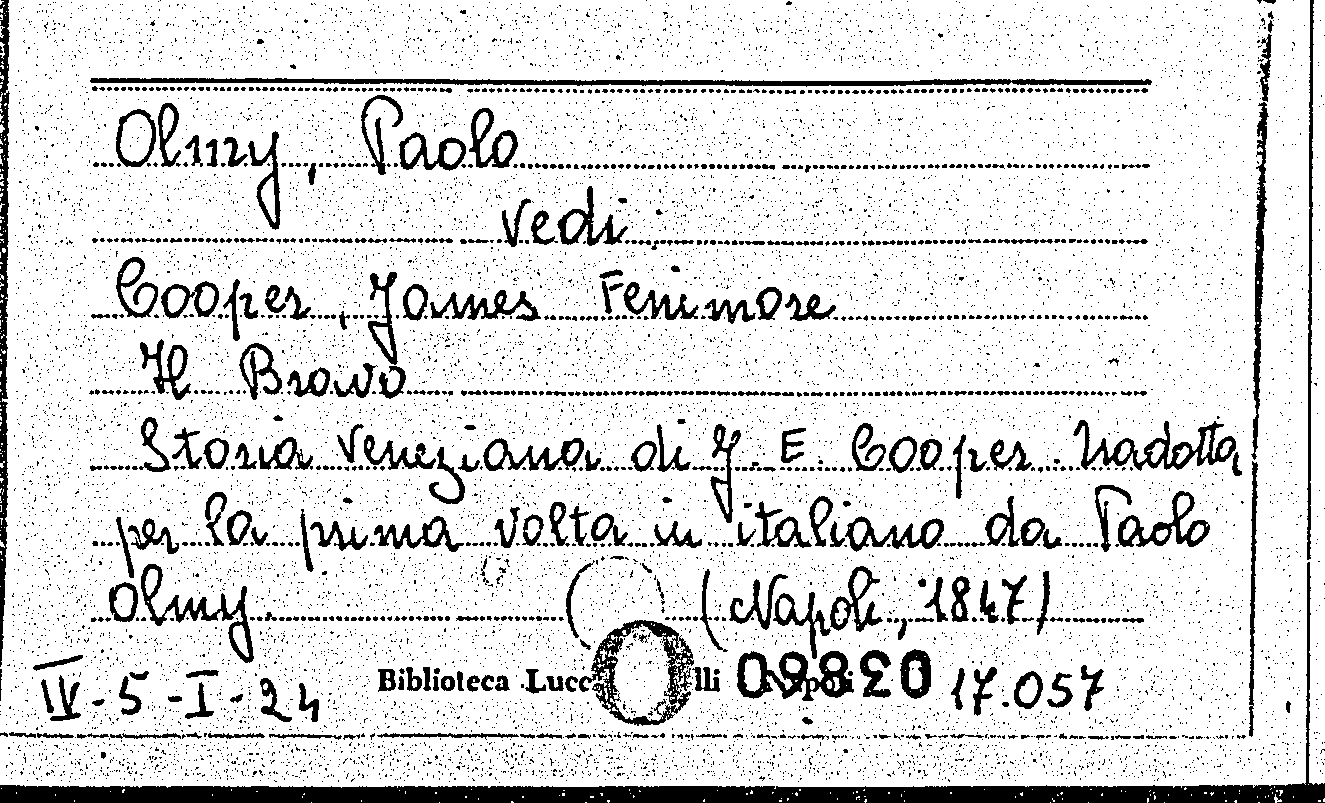 Olmy, Paolo
vedi
Cooper, James Fenimore
Il Bravo
Storia veneziana di J. E. Cooper. Tradotta
per la prima volta in italiano da Paolo
Olmy. (Napoli, 1847)
IV-5-I-24 Biblioteca 17.057